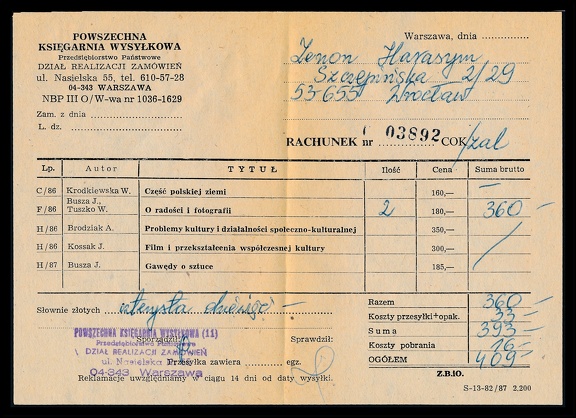 POWSZECHNA
KSIĘGARNIA WYSYŁKOWA
Przedsiębiorstwo Państwowe
DZIAŁ REALIZACJI ZAMÓWIEŃ
ul. Nasielska 55, tel. 610-57-28
04-343 WARSZAWA
NBP III O/W-wa nr 1036-1629
Zam. z dnia
L. dz.
Warszawa, dnia
Zenon Harasym
Szczepińska 2/29
53-655 Wrocław
RACHUNEK nr 03892 COK/zal
Lp. Autor TYTUŁ Ilość Cena Suma brutto
C/86 Krodkiewska W. Część polskiej ziemi 160,— —
F/86 Busza J., Tuszko W. O radości i fotografii 2 180,— 360 —
H/86 Brodziak A. Problemy kultury i działalności społeczno-kulturalnej 350,—
H/86 Kossak J. Film i przekształcenia współczesnej kultury 300,—
H/87 Busza J. Gawędy o sztuce 185,—
Słownie złotych czterysta dziewięć —
Razem 360 —
Koszty przesyłki+opak. 33 —
Suma 393 —
Koszty pobrania 16 —
OGÓŁEM 409 —
Sporządził: Sprawdził:
POWSZECHNA KSIĘGARNIA WYSYŁKOWA (11)
Przedsiębiorstwo Państwowe
DZIAŁ REALIZACJI ZAMÓWIEŃ
ul. Nasielska
04-343 Warszawa
Przesyłka zawiera egz.
Reklamacje uwzględniamy w ciągu 14 dni od daty wysyłki.
Z.B.10.
S-13-82/87 2.200